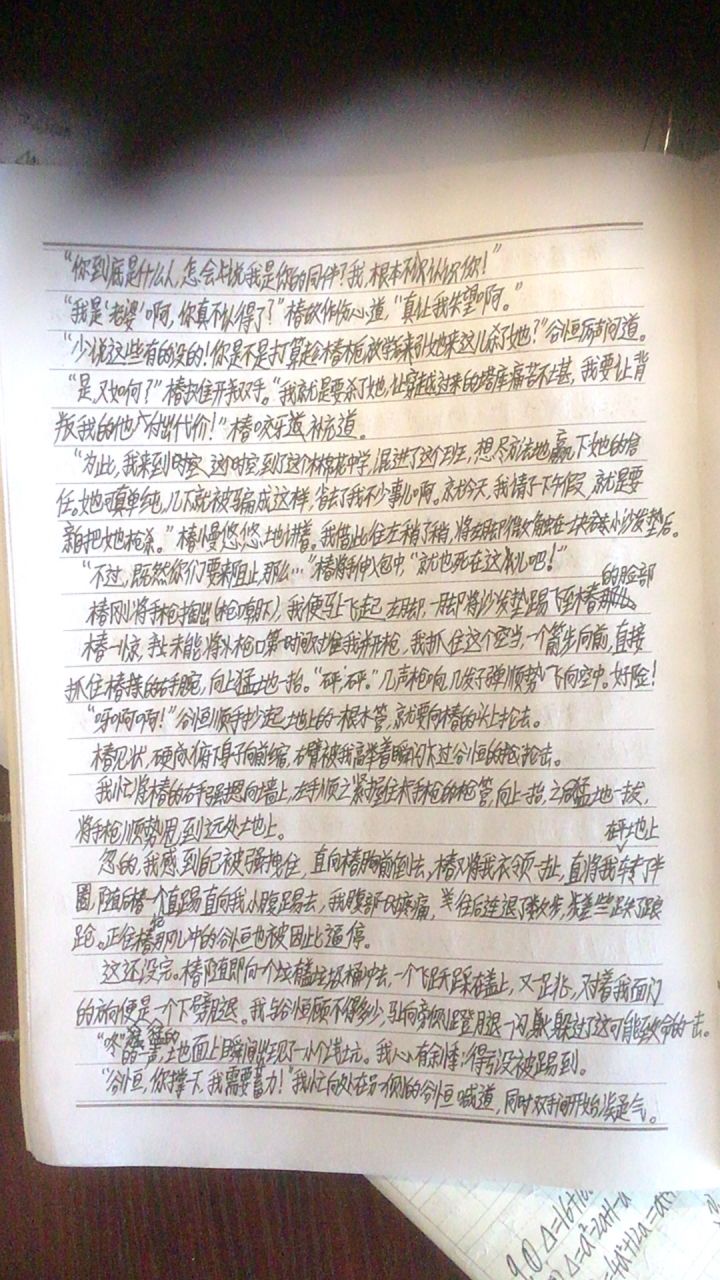 “你到底是什么人,怎会说我是你的同伴?我,根本不认识你!”
“我是‘老婆’啊,你真不认得了?”椿故作伤心道,“真让我失望啊。”
“少说这些有的没的!你是不是打算趁椿放学来引她来这儿杀了她?”谷恒厉声问道。
“是,又如何?”椿摊开双手。“我就是要杀了她,让穿越过来的痛苦不堪,我要让背
叛我的他付出代价!”椿咬牙道,补充道。
“为此,我来到这个时空到了这个棉花中学,混进了这个班,想尽方法地赢下她的信
任。她可真单纯,几下就被骗成这样,省去了我不少事儿啊。就今天,我请了下午假,就是要
亲自把她枪杀。”椿慢悠悠地讲着。我借此往左稍了稍,将左脚触在一块小沙发垫后。
“不过,既然你们要来阻止,那么…”椿将手伸入包中,“就也死在这儿吧!”
的脸部
椿刚将手枪掏出(枪口朝下),我便马上飞起左脚,一脚将沙发垫踢飞至椿
椿一惊,未能将枪口第一时间对准我并开枪,我抓住这个空当,一个箭步向前,直接
抓住椿的右手腕,向上猛地一抬。“砰,砰。”几声枪响,几发子弹顺势飞向空中。好险!
“呀啊啊!”谷恒顺手抄起地上的一根木管,就要向椿的头上抡去。
椿见状,硬向俯身子向前缩,右臂被我高举着瞬闪过谷恒的抡击。
我忙将椿的右手强摁向墙上,左手顺之紧握住手枪的枪管,向上一抬,之后猛地一拔,
将手枪顺势甩到远处地上。
在地上
忽的,我感到自己被强拽住,直向椿胸前倒去。椿又将我衣领一扯,直将我转了半
圈,随后椿一个直踢直向我小腹踢去,我腹部一阵疼痛,往后连退了数步,差些跌了踉
跄。正往椿那儿冲的谷恒也被因此逼停。
这还没完。椿随即向一个垃圾桶冲去,一个飞跃踩在盖上,又一足兆,对着我面门
的方向便是一个下劈腿。我与谷恒顾不得多少,马上向旁侧蹬腿一闪,躲过了这可能致命的一击。
“咚”的一声,土地面上瞬间出现了一个浅坑。我心有余悸:得亏没被踢到。
“谷恒,你撑一下,我需要蓄力!”我忙向处在另一侧的谷恒喊道,同时双手间开始凝气。